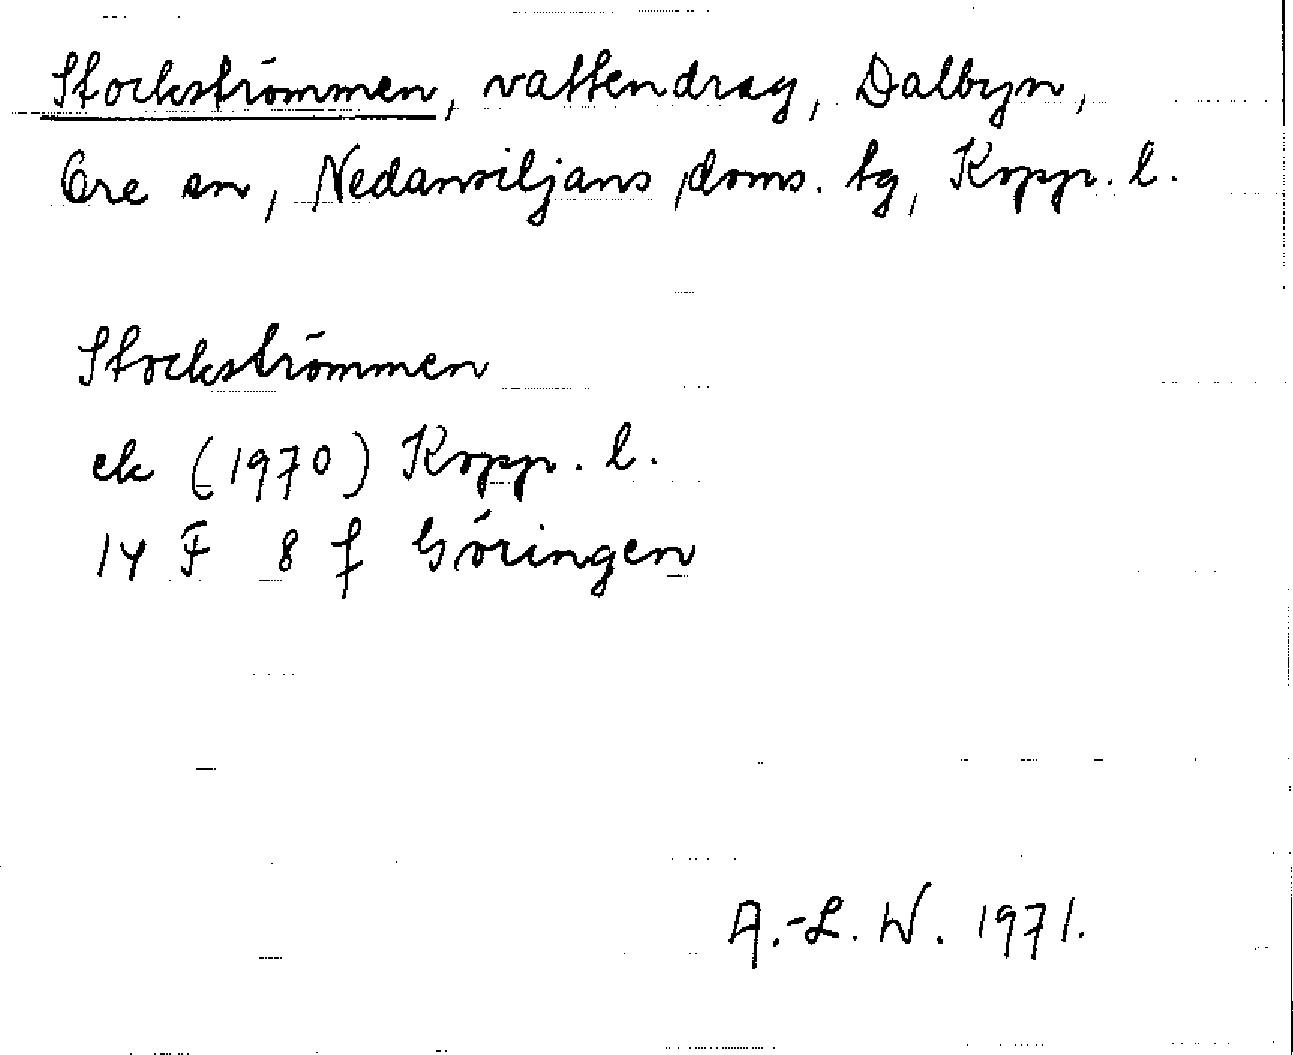 Stockströmmen, vattendrag, Dalbyn,
Ore sn, Nedansiljans doms. tg, Kopp. l.
Stockströmmen
ek (1970) Kopp. l.
14 F 8 f Göringen
A.-L. W. 1971.